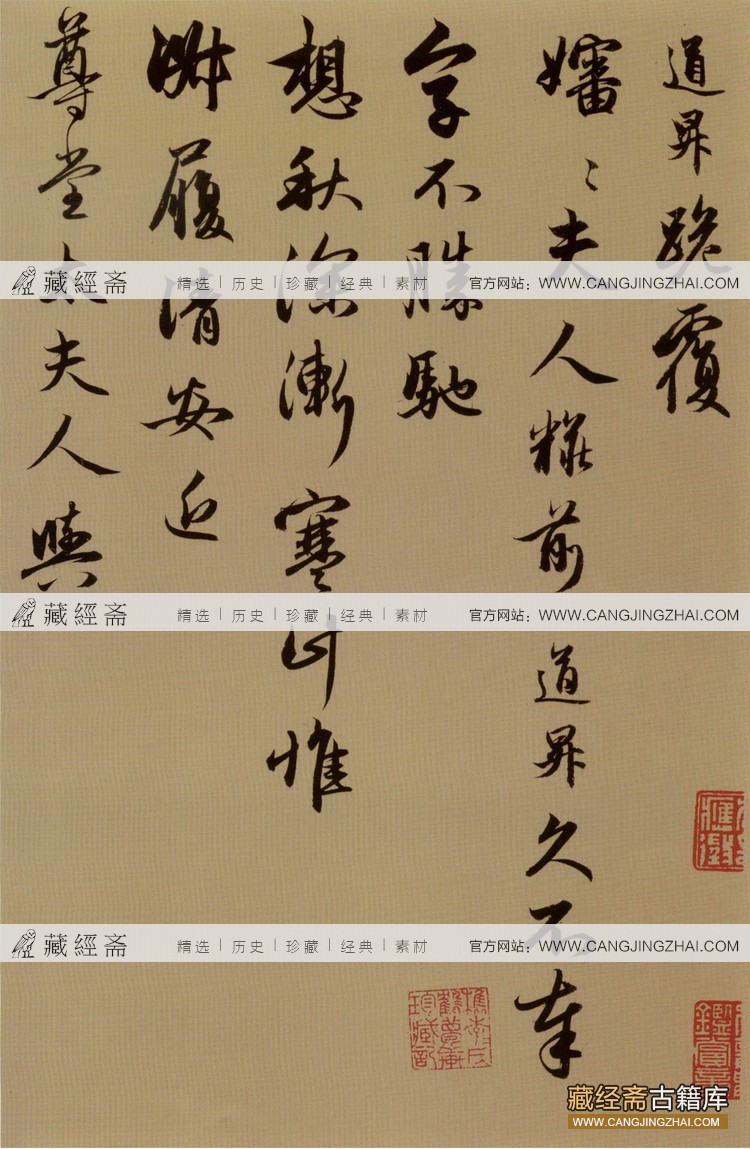 道昇跪覆
嬸〻夫人糚前 道昇久不奉
字不勝馳
想秋深漸寒計惟
淑履清安近
尊堂太夫人與
檇李李氏鶴夢軒珍藏記
藏經斋 精选 | 历史 | 珍藏 | 经典 | 素材 官方网站：WWW.CANGJINGZHAI.COM
藏經斋 精选 | 历史 | 珍藏 | 经典 | 素材 官方网站：WWW.CANGJINGZHAI.COM
藏經斋 精选 | 历史 | 珍藏 | 经典 | 素材 官方网站：WWW.CANGJINGZHAI.COM
藏经斋古籍库
www.CANGJINGZHAI.COM